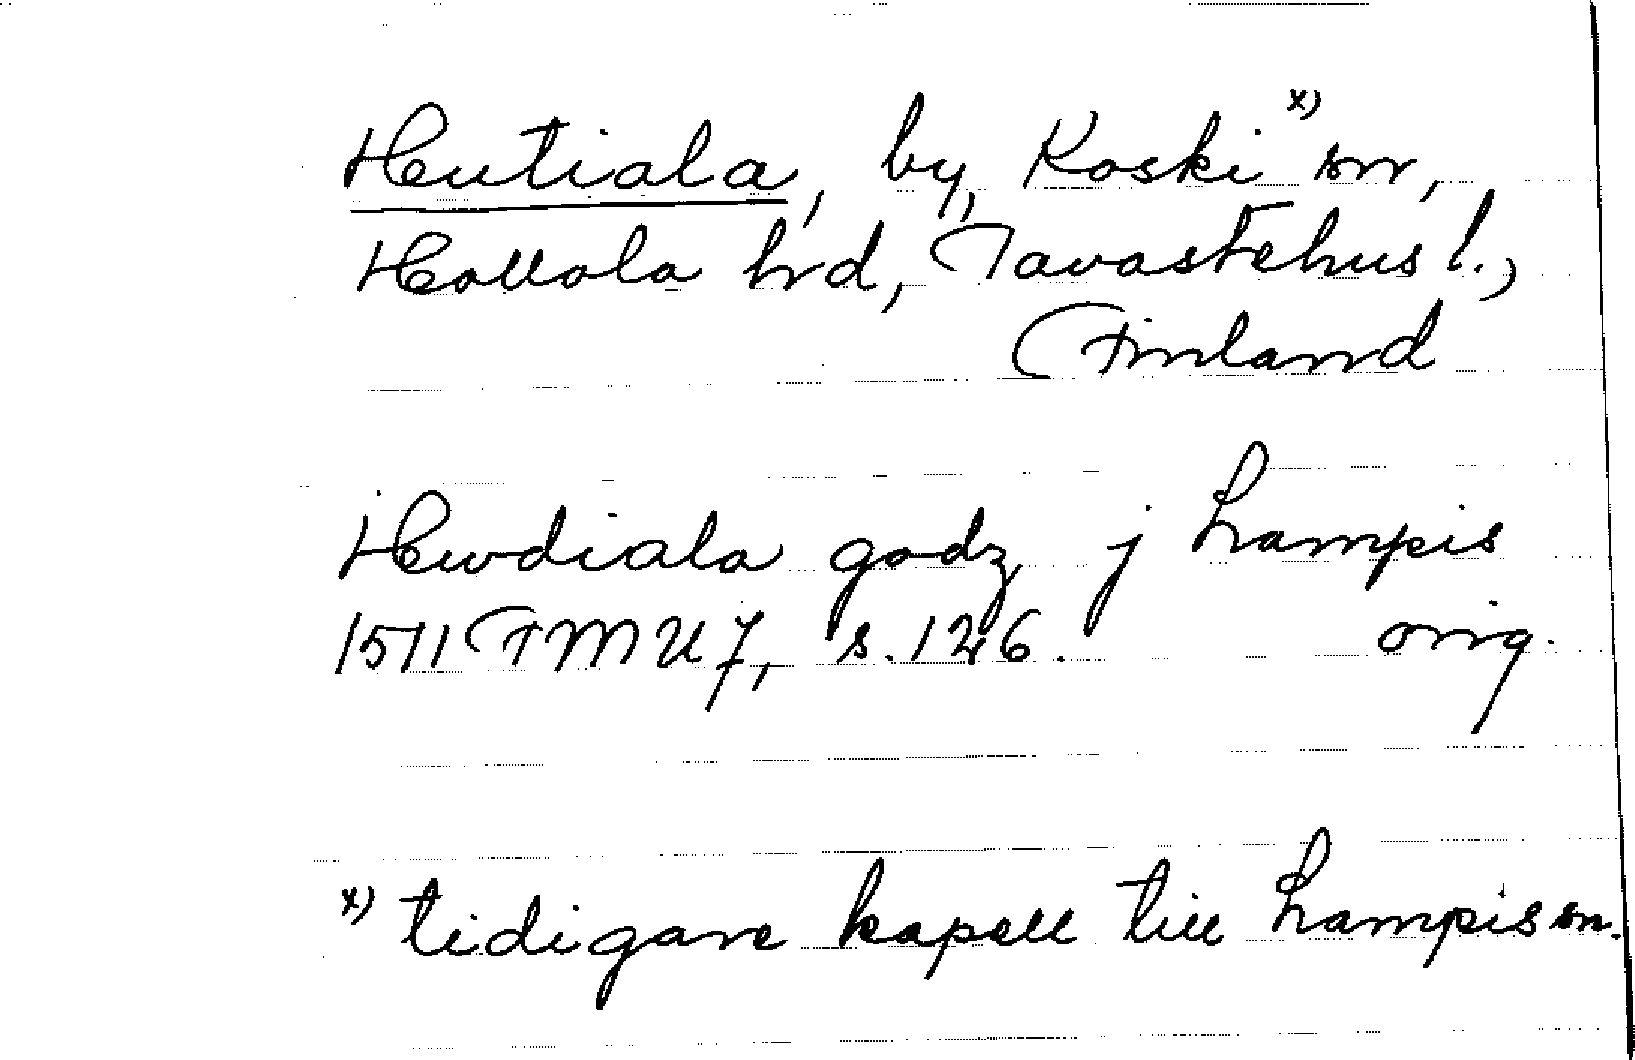 Heutiala, by, Koski x) sn,
Hollola hrd, Tavastehus l.,
Finland
Hewdiala godz j Lampis
1511 FMU 7, s. 126. orig.
x) tidigare kapell till Lampis sn.